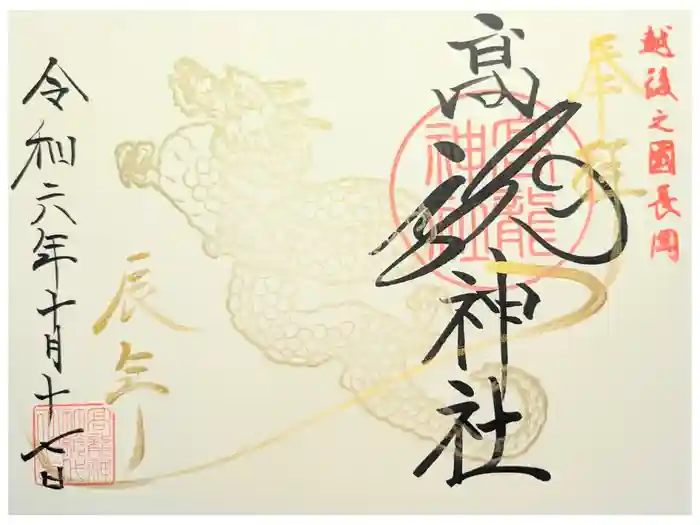 越後之國長岡
奉拝
髙龍神社
髙龍神社
辰年
令和六年十月十七日